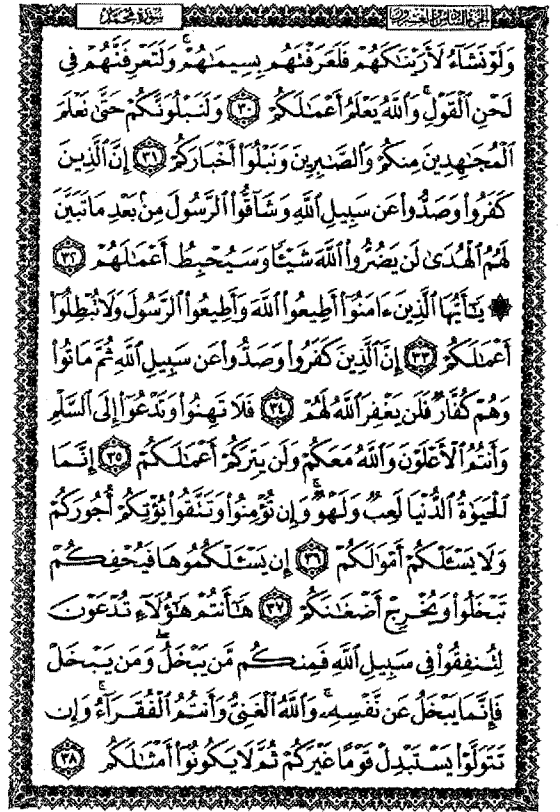 الجزء السادس والعشرون سورة محمد
وَلَوْ نَشَآءُ لَأَرَيْنَٰكَهُمْ فَلَعَرَفْتَهُم بِسِيمَٰهُمْ ۚ وَلَتَعْرِفَنَّهُمْ فِى
لَحْنِ ٱلْقَوْلِ ۚ وَٱللَّهُ يَعْلَمُ أَعْمَٰلَكُمْ ٣٠ وَلَنَبْلُوَنَّكُمْ حَتَّىٰ نَعْلَمَ
ٱلْمُجَٰهِدِينَ مِنكُمْ وَٱلصَّٰبِرِينَ وَنَبْلُوَا۟ أَخْبَارَكُمْ ٣١ إِنَّ ٱلَّذِينَ
كَفَرُوا۟ وَصَدُّوا۟ عَن سَبِيلِ ٱللَّهِ وَشَآقُّوا۟ ٱلرَّسُولَ مِنۢ بَعْدِ مَا تَبَيَّنَ
لَهُمُ ٱلْهُدَىٰ لَن يَضُرُّوا۟ ٱللَّهَ شَيْـًٔا وَسَيُحْبِطُ أَعْمَٰلَهُمْ ٣٢
۞ يَٰٓأَيُّهَا ٱلَّذِينَ ءَامَنُوٓا۟ أَطِيعُوا۟ ٱللَّهَ وَأَطِيعُوا۟ ٱلرَّسُولَ وَلَا تُبْطِلُوٓا۟
أَعْمَٰلَكُمْ ٣٣ إِنَّ ٱلَّذِينَ كَفَرُوا۟ وَصَدُّوا۟ عَن سَبِيلِ ٱللَّهِ ثُمَّ مَاتُوا۟
وَهُمْ كُفَّارٌ فَلَن يَغْفِرَ ٱللَّهُ لَهُمْ ٣٤ فَلَا تَهِنُوا۟ وَتَدْعُوٓا۟ إِلَى ٱلسَّلْمِ
وَأَنتُمُ ٱلْأَعْلَوْنَ وَٱللَّهُ مَعَكُمْ وَلَن يَتِرَكُمْ أَعْمَٰلَكُمْ ٣٥ إِنَّمَا
ٱلْحَيَوٰةُ ٱلدُّنْيَا لَعِبٌ وَلَهْوٌ ۚ وَإِن تُؤْمِنُوا۟ وَتَتَّقُوا۟ يُؤْتِكُمْ أُجُورَكُمْ
وَلَا يَسْـَٔلْكُمْ أَمْوَٰلَكُمْ ٣٦ إِن يَسْـَٔلْكُمُوهَا فَيُحْفِكُمْ
تَبْخَلُوا۟ وَيُخْرِجْ أَضْغَٰنَكُمْ ٣٧ هَٰٓأَنتُمْ هَٰٓؤُلَآءِ تُدْعَوْنَ
لِتُنفِقُوا۟ فِى سَبِيلِ ٱللَّهِ فَمِنكُم مَّن يَبْخَلُ ۖ وَمَن يَبْخَلْ
فَإِنَّمَا يَبْخَلُ عَن نَّفْسِهِۦ ۚ وَٱللَّهُ ٱلْغَنِىُّ وَأَنتُمُ ٱلْفُقَرَآءُ ۚ وَإِن
تَتَوَلَّوْا۟ يَسْتَبْدِلْ قَوْمًا غَيْرَكُمْ ثُمَّ لَا يَكُونُوٓا۟ أَمْثَٰلَكُم ٣٨